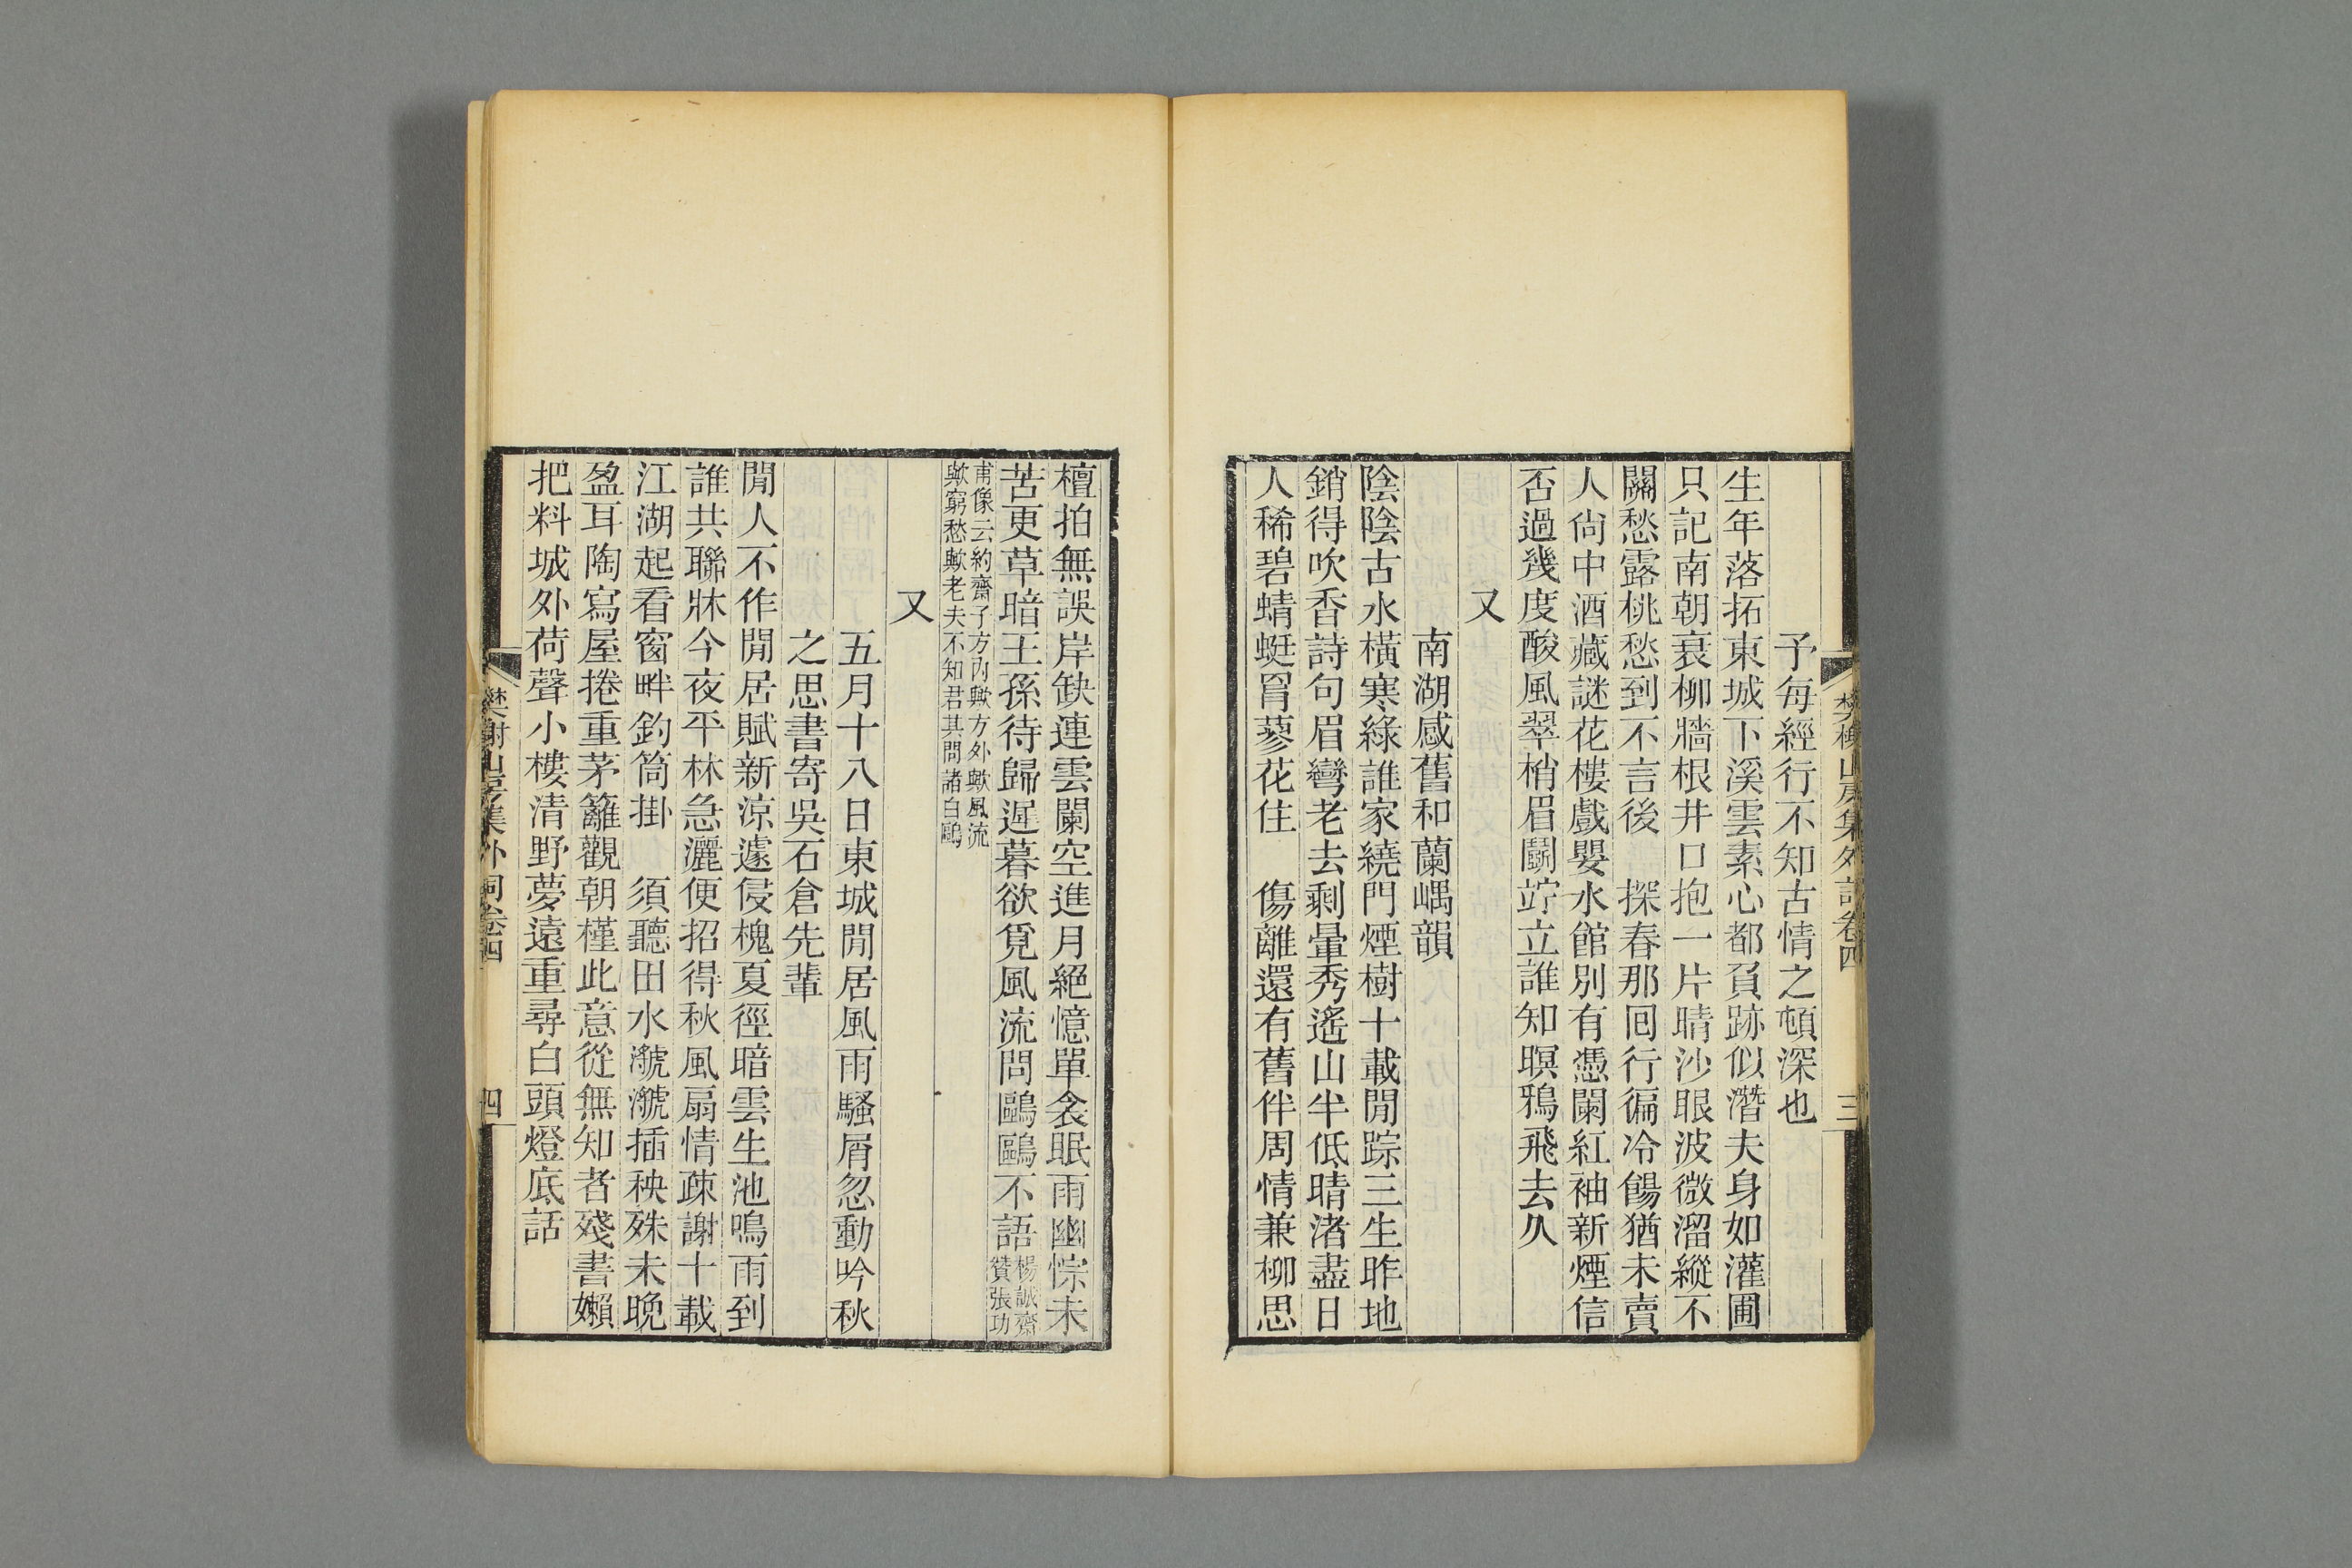 樊榭山房集外詞卷四
三
予每經行不知古情之頓深也
生年落拓東城下溪雲素心都負跡似潛夫身如灌圃
只記南朝衰柳牆根井口抱一片晴沙眼波微溜縱不
關愁露桃愁到不言後 探春那囘行徧冷餳猶未賣
人尙中酒藏謎花樓戲嬰水館別有憑闌紅袖新煙信
否過幾度酸風翠梢眉鬭竚立誰知暝鴉飛去久
又
南湖感舊和蘭嵎韻
陰陰古水橫寒綠誰家繞門煙樹十載閒踪三生昨地
銷得吹香詩句眉彎老去剩暈秀遙山半低晴渚盡日
人稀碧蜻蜓罥蓼花住 傷離還有舊伴周情兼柳思
檀拍無誤岸缺連雲闌空進月絕憶單衾眠雨幽悰未
苦更草暗王孫待歸遲暮欲覓風流問鷗鷗不語楊誠齋
贊張功
甫像云約齋子方內歟方外歟風流
歟窮愁歟老夫不知君其問諸白鷗
又
五月十八日東城閒居風雨騷屑忽動吟秋
之思書寄吳石倉先輩
閒人不作閒居賦新涼遽侵槐夏徑暗雲生池鳴雨到
誰共聯牀今夜平林急灑便招得秋風扇情疎謝十載
江湖起看窗畔釣筒掛 須聽田水㶁㶁插秧殊未晚
盈耳陶寫屋捲重茅籬觀朝槿此意從無知者殘書嬾
把料城外荷聲小樓清野夢遠重尋白頭燈底話
樊榭山房集外詞卷四
四